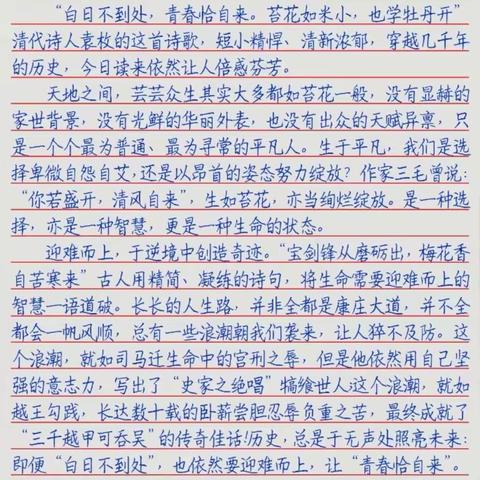 “白日不到处，青春恰自来。苔花如米小，也学牡丹开”
清代诗人袁枚的这首诗歌，短小精悍、清新浓郁，穿越几千年
的历史，今日读来依然让人倍感芬芳。
天地之间，芸芸众生其实大多都如苔花一般，没有显赫的
家世背景，没有光鲜的华丽外表，也没有出众的天赋异禀，只
是一个个最为普通、最为寻常的平凡人。生于平凡，我们是选
择卑微自怨自艾，还是以昂首的姿态努力绽放？作家三毛曾说：
“你若盛开，清风自来”，生如苔花，亦当绚烂绽放。是一种选
择，亦是一种智慧，更是一种生命的状态。
迎难而上，于逆境中创造奇迹。“宝剑锋从磨砺出，梅花香
自苦寒来”古人用精简、凝练的诗句，将生命需要迎难而上的
智慧一语道破。长长的人生路，并非全都是康庄大道，并不全
都会一帆风顺，总有一些浪潮朝我们袭来，让人猝不及防。这
个浪潮，就如司马迁生命中的宫刑之辱，但是他依然用自己坚
强的意志力，写出了“史家之绝唱”犒飨世人；这个浪潮，就如
越王勾践，长达数十载的卧薪尝胆忍辱负重之苦，最终成就了
“三千越甲可吞吴”的传奇佳话！历史，总是于无声处照亮未来：
即便“白日不到处”，也依然要迎难而上，让“青春恰自来”。